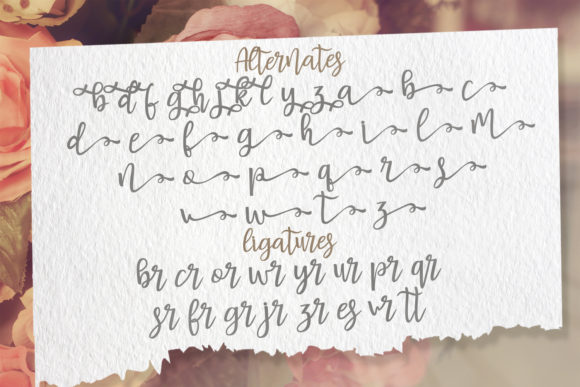 Alternates
b d f g h j k l y z a b c
d e f g h i l m
n o p q r s
u w t z
ligatures
br cr or wr yr ur pr qr
sr fr gr jr zr es vr tt